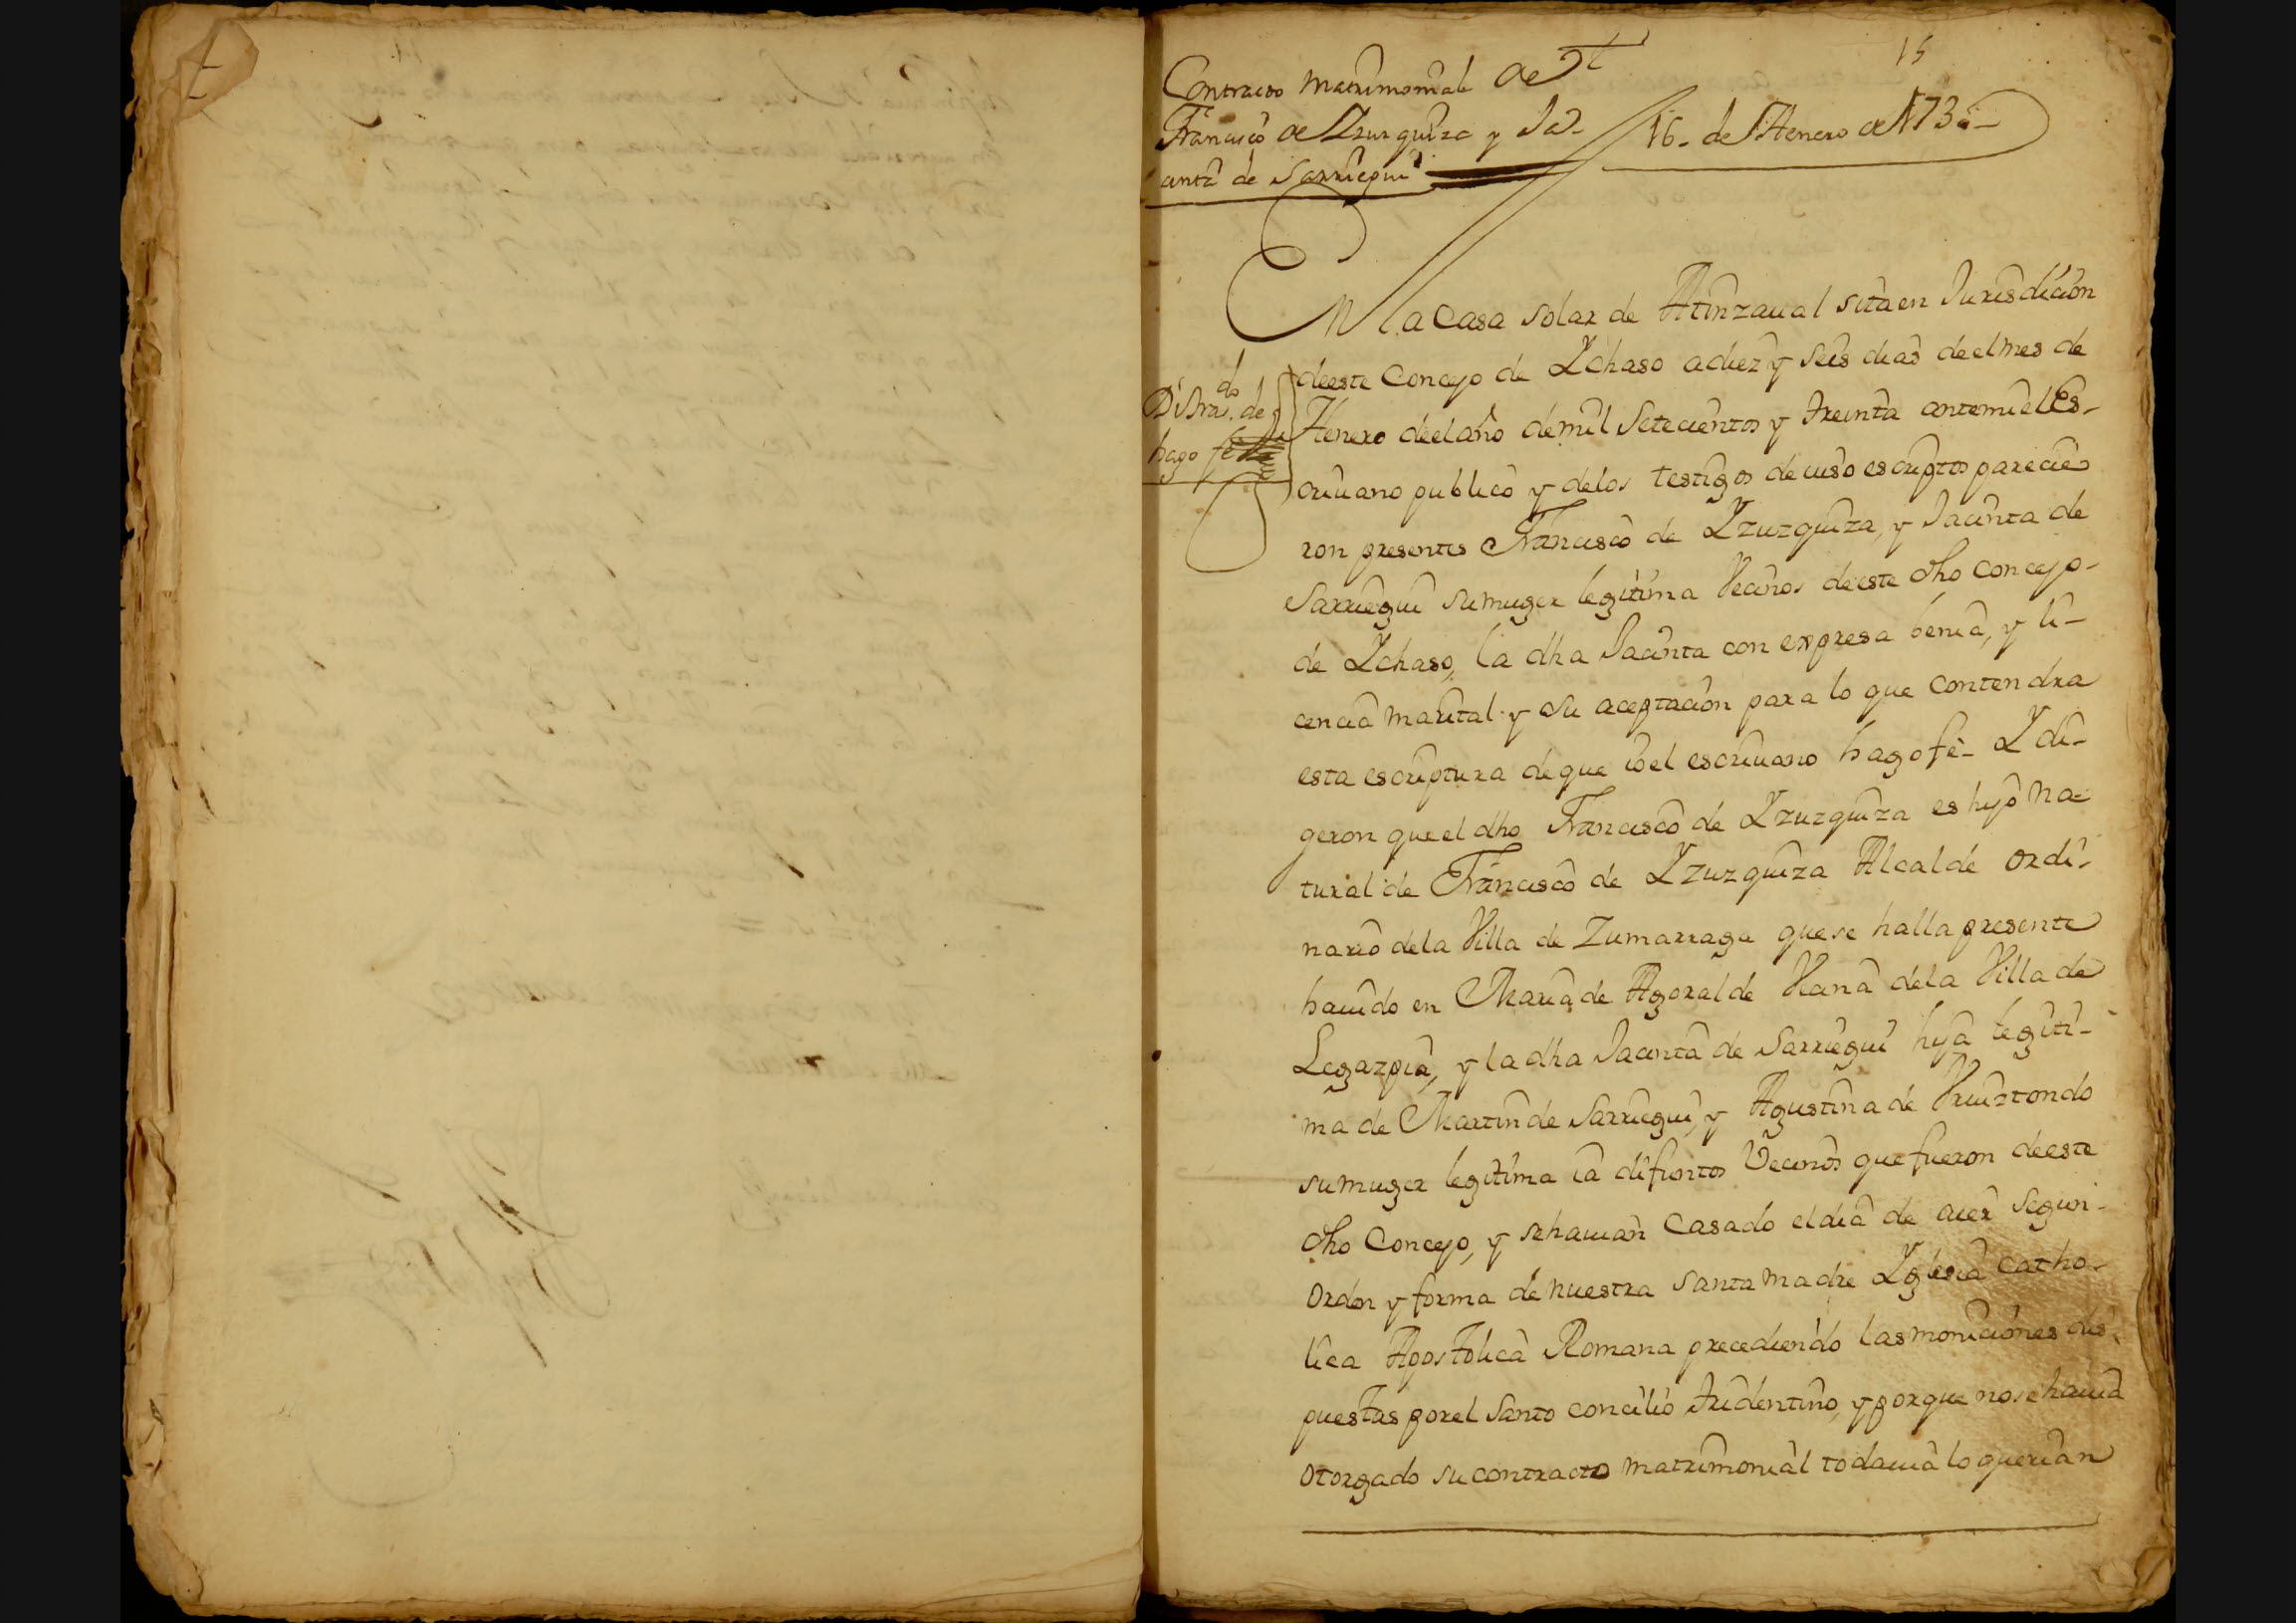 15
Contracto Matrimonial de
Francisco de Yzurquiza y Ja-
cinta de Sarriegui
16. de Henero de 1730
EN la Casa Solar de Atinzaual sita en Jurisdicion
deeste Concejo de Ychaso a diez y seis dias deel mes de
Henero deel año de mil Setecientos y treinta antemi el Es-
criuano publico y delos testigos de iuso escriptos parecie
ron presentes Francisco de Yzurquiza, y Jacinta de
Sarriegui su muger legitima Vecinos deeste dho concejo-
de Ychaso, la dha Jacinta con expresa benia, y li-
cencia marital y su aceptacion para lo que contendra
esta escriptura de que io el escriuano hago fè- Y di-
geron que el dho Francisco de Yzurquiza es hijo na-
tural de Francisco de Yzurquiza Alcalde ordi-
nario dela Villa de Zumarraga que se halla presente
hauido en Maria de Agoralde Vecina dela Villa de
Legazpia, y la dha Jacinta de Sarriegui hija legiti-
ma de Martin de Sarriegui, y Agustina de Vruiztondo
su muger legitima ia difuntos Vecinos que fueron deeste
dho Concejo, y se hauian Casado el dia de aier segun-
Orden y forma de nuestra Santa Madre Yglesia Catho-
lica Apostolica Romana precediendo las moniciones dis-
puestas por el Santo concilio tridentino, y porque no se hauia
otorgado su contracto matrimonial todauia lo querian
Di tra.do de
hago fè